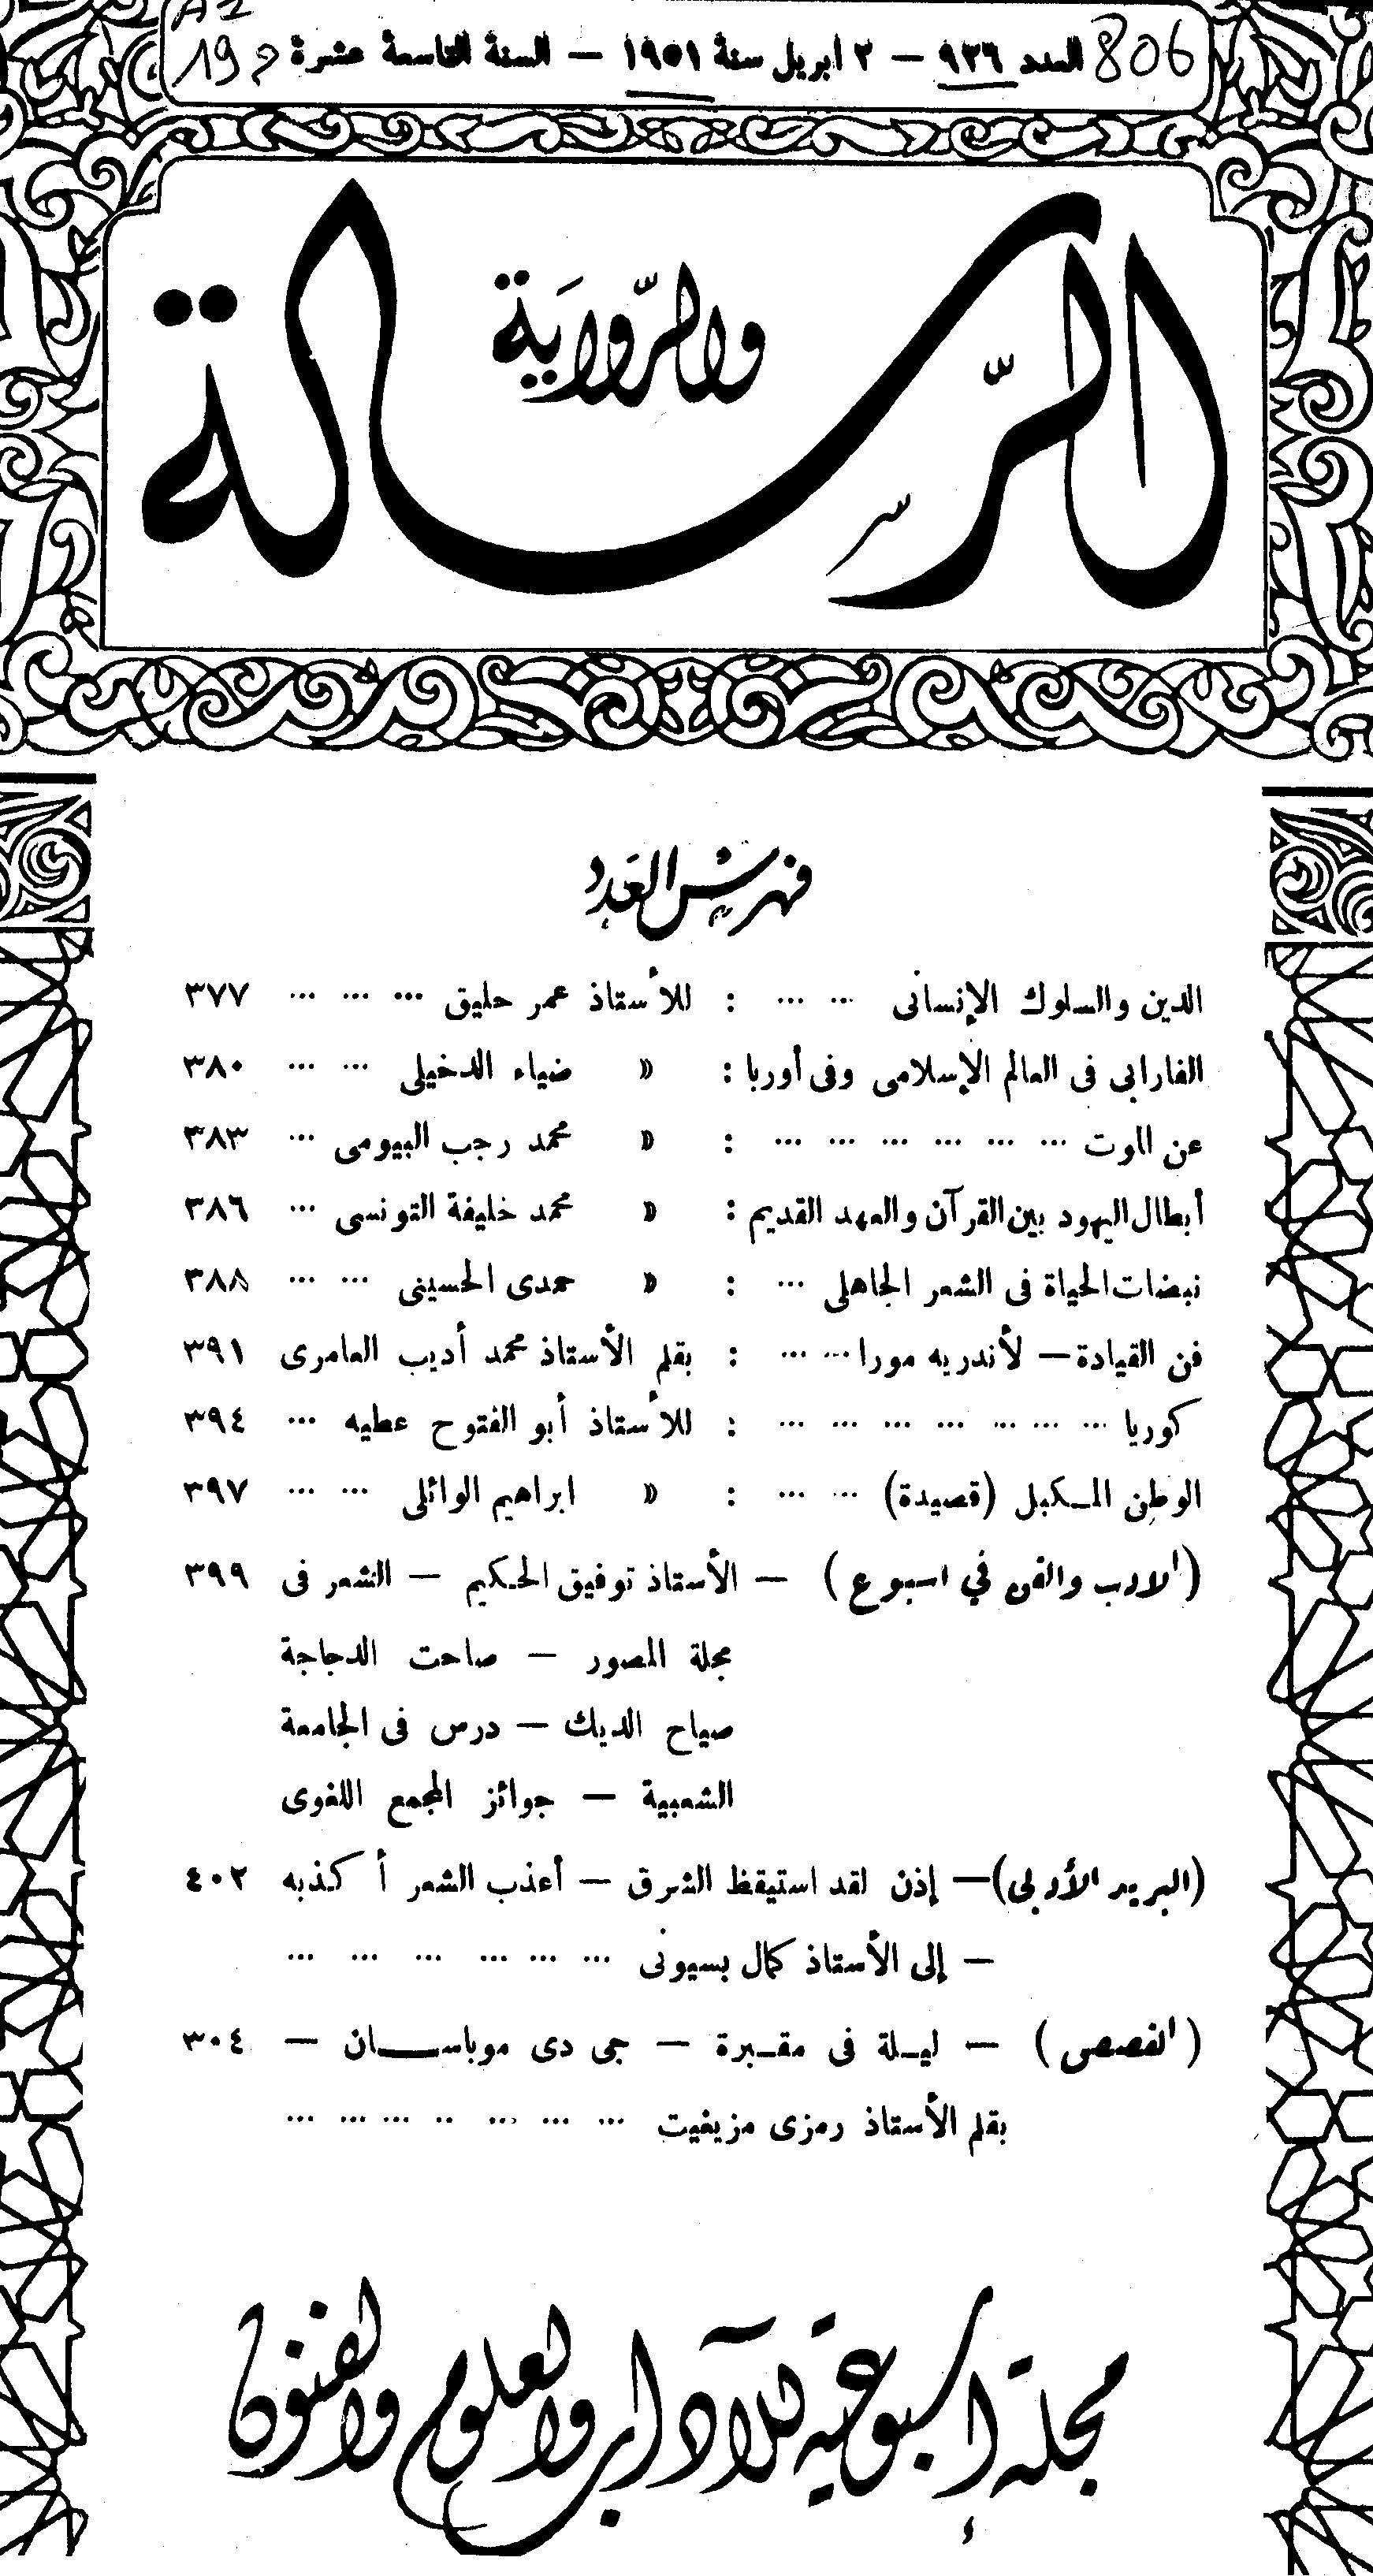 806 العدد ٩٣٦ — ٢ ابريل سنة ١٩٥١ — السنة التاسعة عشرة
الرسالة
والرواية
فهرس العدد
الدين والسلوك الإنسانى ... ... : للأستاذ عمر حليق ... ... ... ٣٧٧
الفارابى فى العالم الإسلامى وفى أوربا : » ضياء الدخيلى ... ... ٣٨٠
عن الموت ... ... ... ... ... ... : » محمد رجب البيومى ... ٣٨٣
أبطال اليهود بين القرآن والعهد القديم : » محمد خليفة التونسى ... ٣٨٦
نبضات الحياة فى الشعر الجاهلى ... : » حمدى الحسينى ... ... ٣٨٨
فن القيادة — لأندريه مورا ... ... : بقلم الأستاذ محمد أديب العامرى ٣٩١
كوريا ... ... ... ... ... ... ... : للأستاذ أبو الفتوح عطيه ... ٣٩٤
الوطن المكبل (قصيدة) ... ... : » ابراهيم الوائلى ... ... ٣٩٧
(الأدب والفن في اسبوع) — الأستاذ توفيق الحكيم — الشعر فى ٣٩٩
مجلة المصور — صاحت الدجاجة
صياح الديك — درس فى الجامعة
الشعبية — جوائز المجمع اللغوى
(البريد الأدبى) — إذن لقد استيقظ الشرق — أعذب الشعر أكذبه ٤٠٢
— إلى الأستاذ كمال بسيونى ... ... ... ... ... ...
(القصص) — ليلة فى مقبرة — جى دى موباسان — ٣٠٤
بقلم الأستاذ رمزى مزيغيت ... ... ... .. ... ... ...
مجلة إسبوعية للآداب والعلوم والفنون